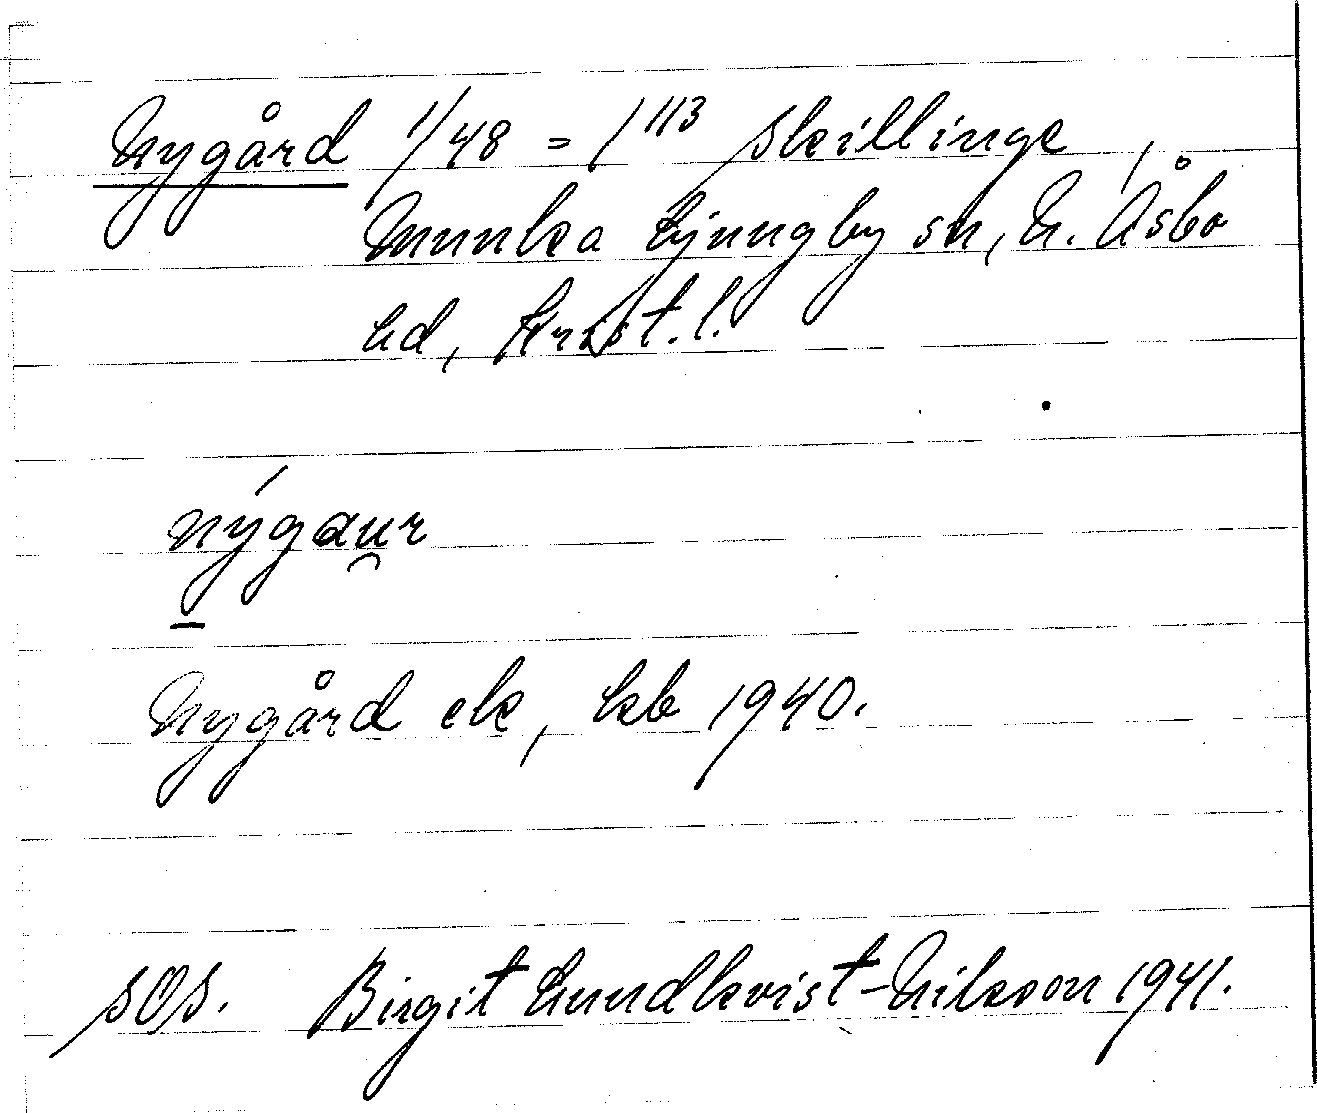 Nygård 1/48 = 1 1/3 Skillinge,
Munka Ljungby sn, N. Åsbo
hd, Krist. l.
nýgau̯r
Nygård ek, kb 1940.
SOS. Birgit Lundkvist-Nilsson 1941.